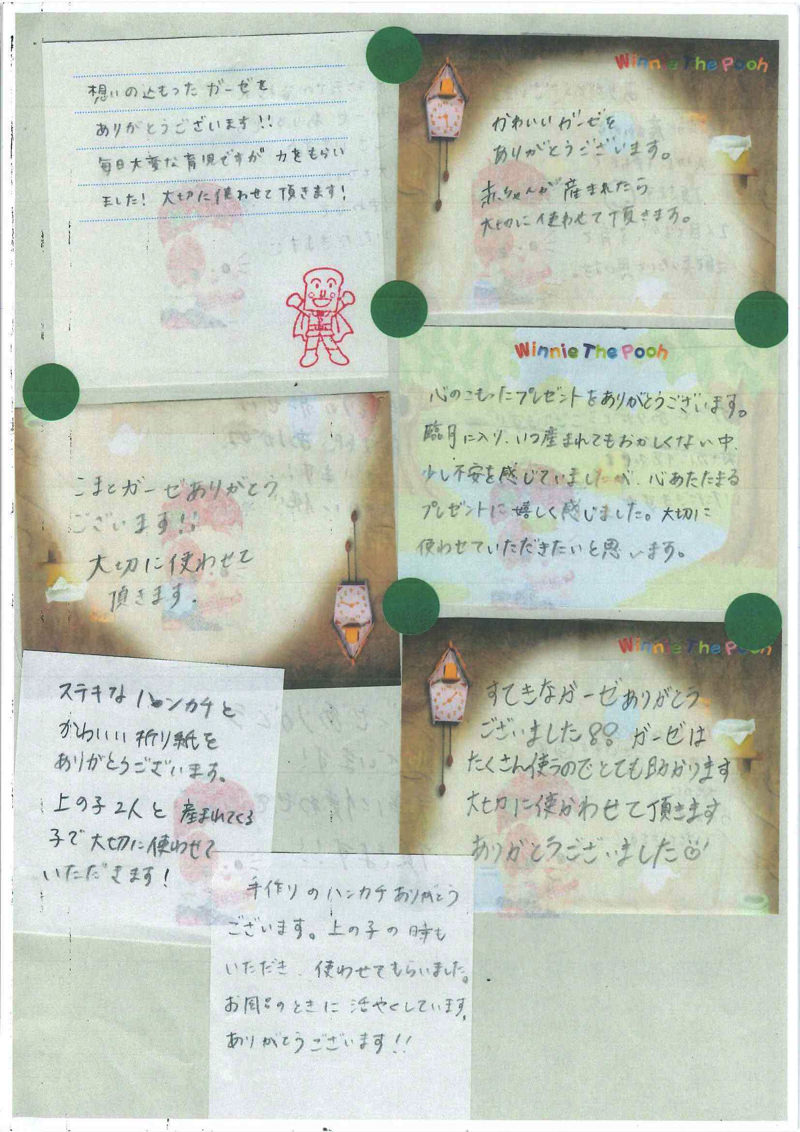 想いの込もったガーゼを
ありがとうございます!!
毎日大変な育児ですが 力をもらい
ました! 大切に使わせて頂きます!
Winnie The Pooh
かわいいガーゼを
ありがとうございます。
赤ちゃんが産まれたら
大切に使わせて頂きます。
Winnie The Pooh
心のこもったプレゼントをありがとうございます。
臨月に入り、いつ産まれてもおかしくない中、
少し不安を感じていましたが、心あたたまる
プレゼントに嬉しく感じました。大切に
使わせていただきたいと思います。
こまとガーゼありがとう
ございます!!
大切に使わせて
頂きます.
Winnie The Pooh
すてきなガーゼありがとう
ございました!! ガーゼは
たくさん使うのでとても助かります
大切に使かわせて頂きます
ありがとうございました
ステキなハンカチと
かわいい折り紙を
ありがとうございます。
上の子2人と 産まれてくる
子で大切に使わせて
いただきます!
手作りのハンカチありがとう
ございます。上の子の時も
いただき、使わせてもらいました。
お風呂のときに 活やくしています。
ありがとうございます!!